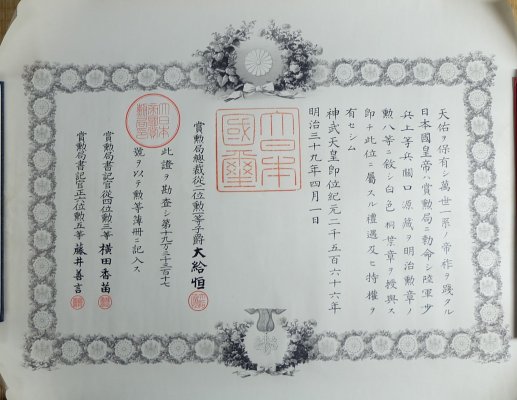 天佑ヲ保有シ萬世一系ノ帝祚ヲ踐タル
日本國皇帝ハ賞勲局ニ勅命シ陸軍步
兵上等兵關口源蔵ヲ明治勲章ノ
勲八等ニ敍シ白色桐葉章ヲ授與ス
即チ此位ニ屬スル禮遇及ヒ特權ヲ
有セシム
神武天皇即位紀元二千五百六十六年
明治三十九年四月一日
大日本
國璽
賞勲局總裁從二位勲一等子爵大給恒
此證ヲ勘査シ第十九万三千三百十七
號ヲ以テ勲等簿冊ニ記入ス
賞勲局書記官從四位勲三等横田香苗
賞勲局書記官正六位勲五等藤井善言